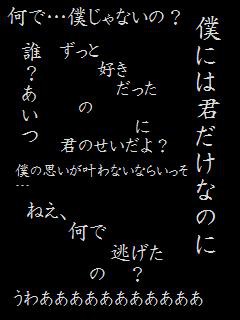 何で…僕じゃないの？
僕には君だけなのに
誰？あいつ
ずっと
好き
だった
の
に
君のせいだよ？
僕の思いが叶わないならいっそ
…
ねえ、
何で
逃げた
の？
うわあああああああああああ